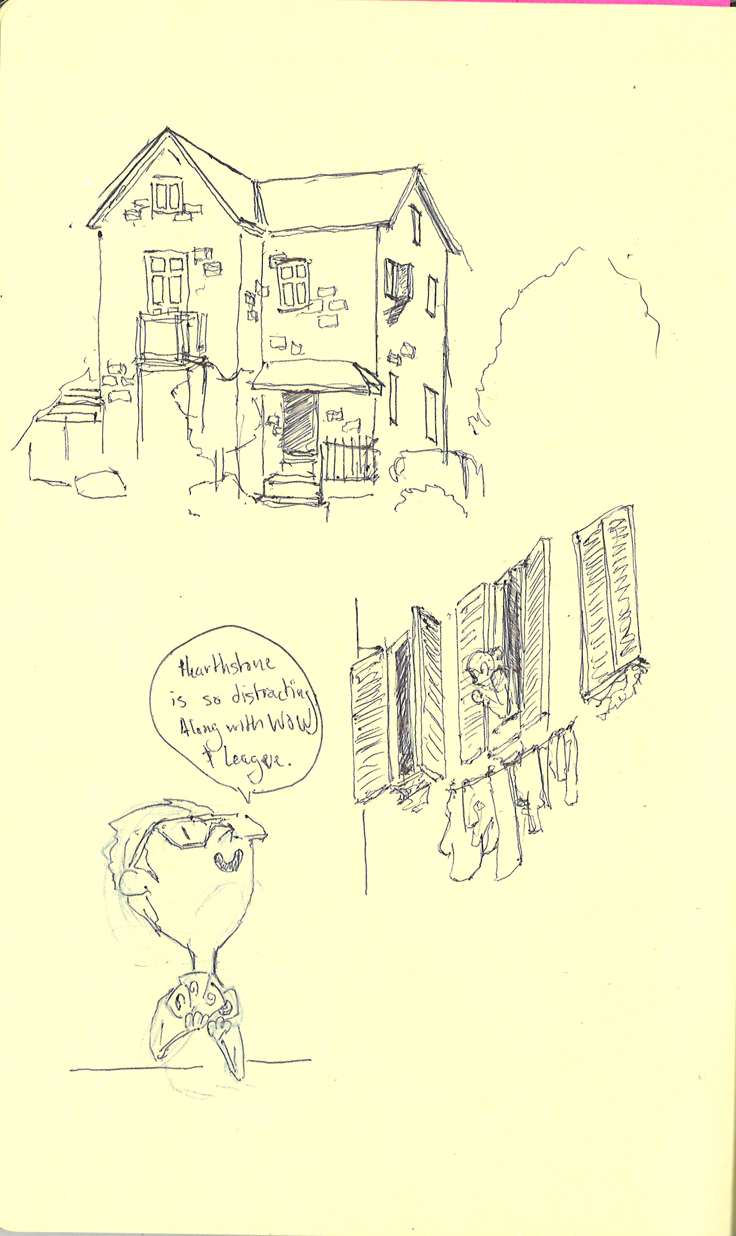 Hearthstone
is so distracting
Along with WOW
& League.